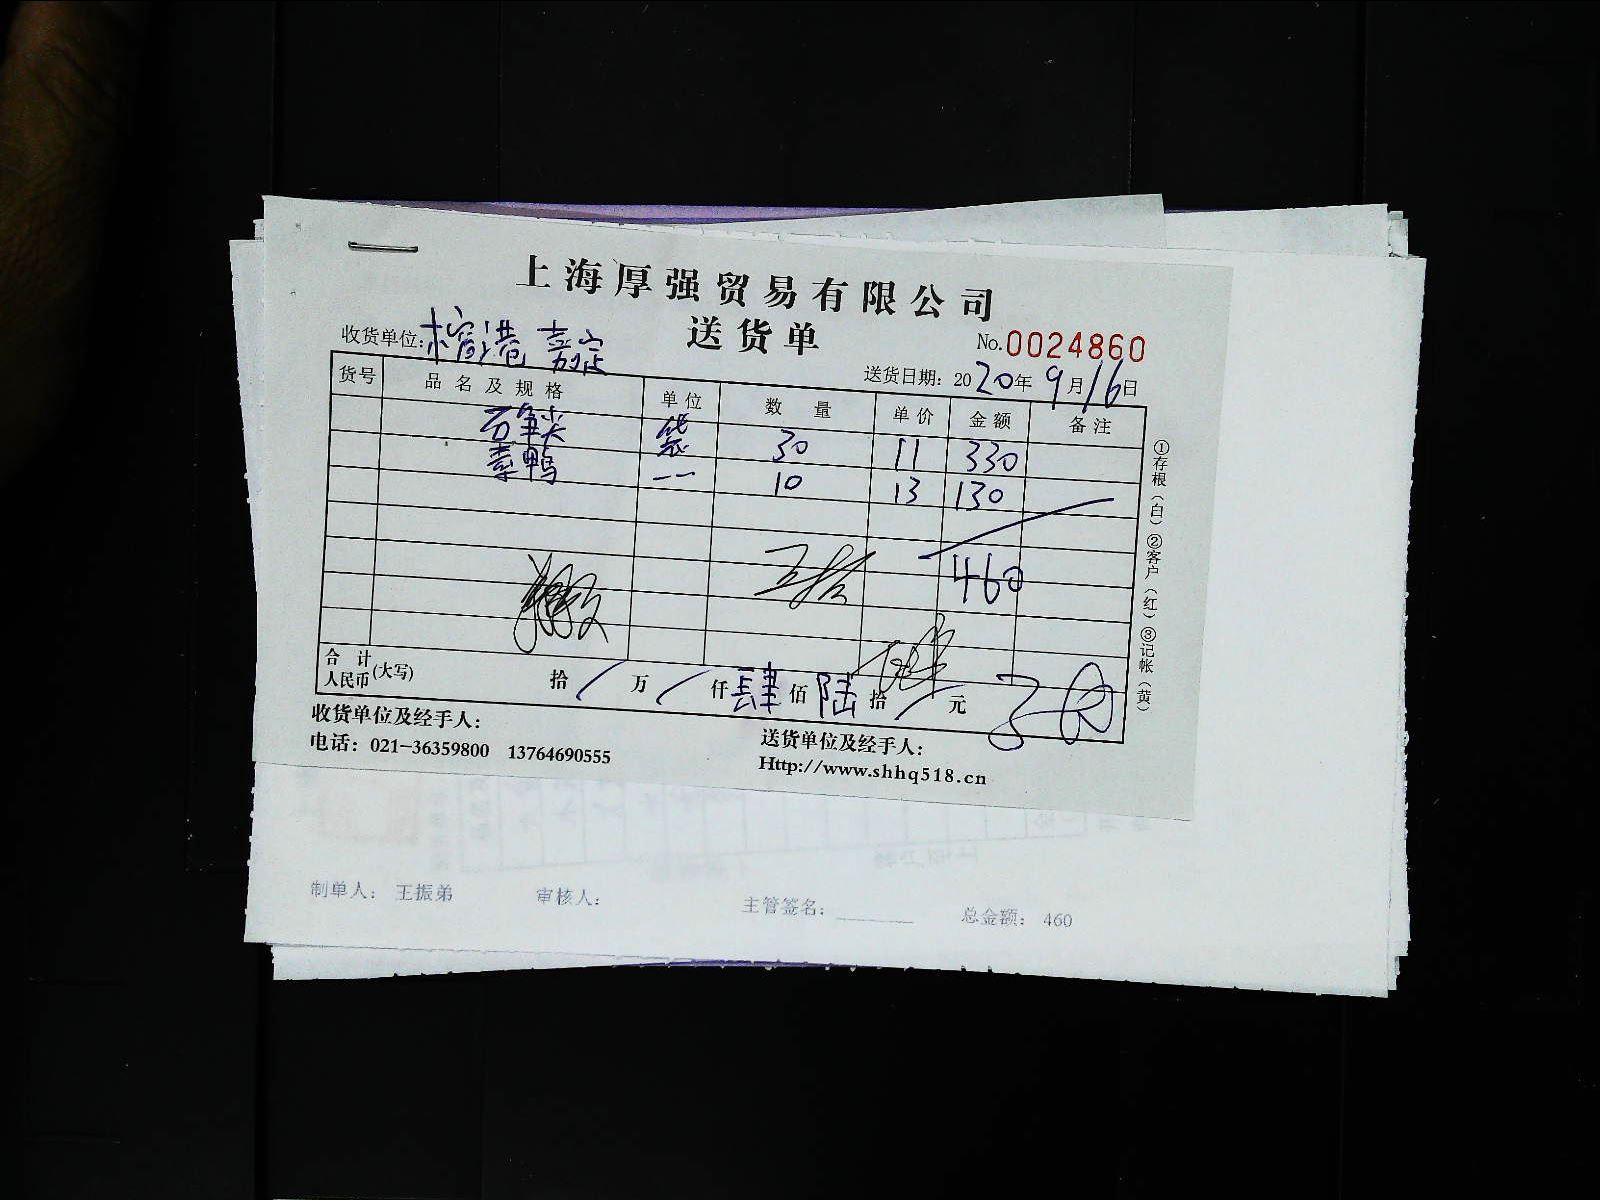 上海厚强贸易有限公司
送货单
收货单位:榕港 嘉定
No.0024860
送货日期: 2020年9月16日
货号 品名及规格 单位 数量 单价 金额 备注
袋 30 11 330
素鸭 10 13 130
460
合计人民币(大写) 拾/万/仟肆佰陆拾/元
收货单位及经手人:
电话: 021-36359800 13764690555
送货单位及经手人:
Http://www.shhq518.cn
①存根(白)②客户(红)③记帐(黄)
制单人: 王振弟 审核人: 主管签名: 总金额: 460